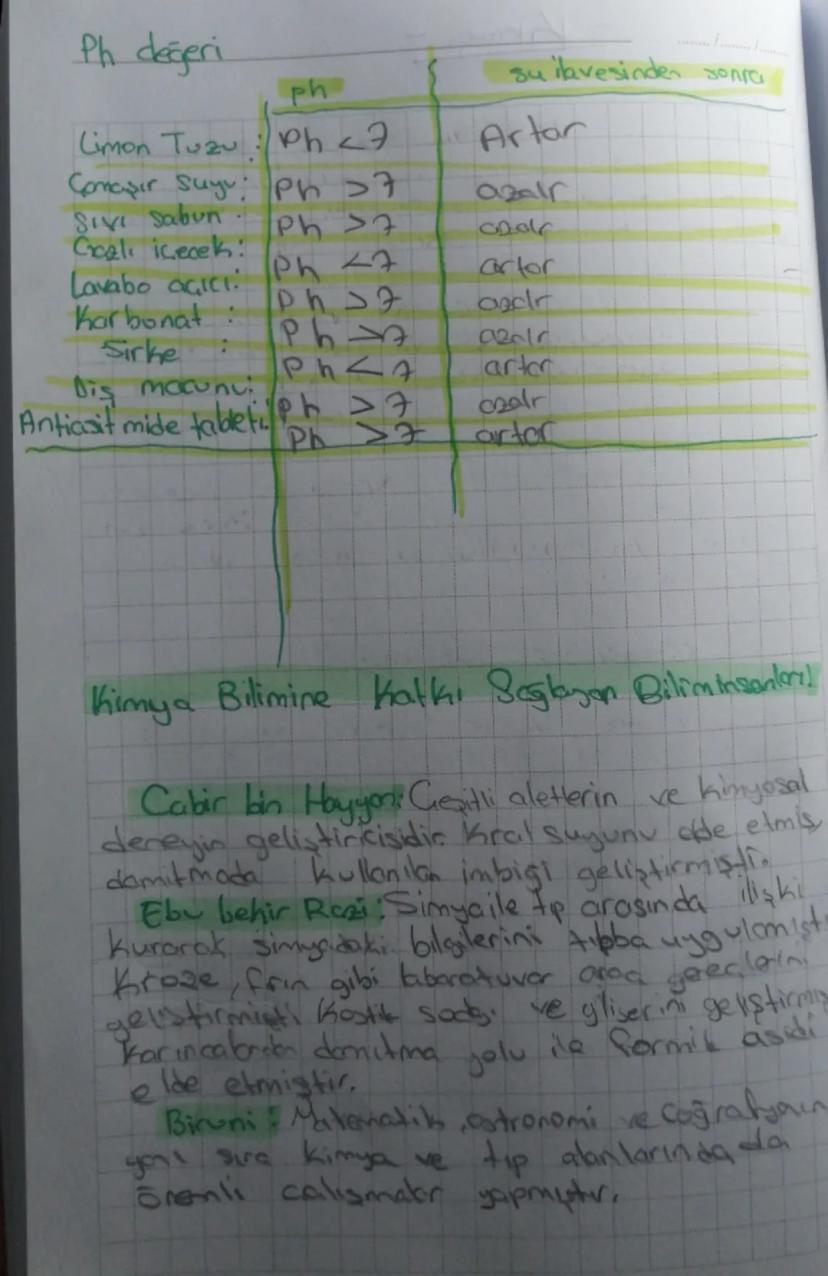 Ph değeri
ph su ilavesinden sonra
Limon Tuzu : Ph < 7 Artar
Çamaşır suyu: Ph > 7 azalr
Sıvı sabun : Ph > 7 azalr
Gazlı icecek: Ph < 7 artar
Lavabo acıcı: Ph > 7 azalr
Karbonat : Ph > 7 azalr
Sirke : Ph < 7 artar
Diş macunu: Ph > 7 azalr
Antiasit mide tableti: Ph > 7 artar
Kimya Bilimine Katkı Sağlayan Bilim İnsanları!
Cabir bin Hayyan: Çeşitli aletlerin ve kimyasal
deneyin geliştiricisidir. Kral suyunu elde etmiş
damıtmada kullanılan imbiği geliştirmişti.
Ebu behir Razi: Simya ile tıp arasında ilişki
kurarak simyadaki bilgilerini tıbba uygulamıştı
Kroze, fırın gibi labaratuvar araç gereçlerini
geliştirmişti Kostik soda ve gliserini geliştirmiş
Karıncalardan damıtma yolu ile formik asidi
elde etmiştir.
Biruni: Matematik, astronomi ve coğrafyanın
yanı sıra kimya ve tıp alanlarında da
önemli calışmalar yapmıştır.